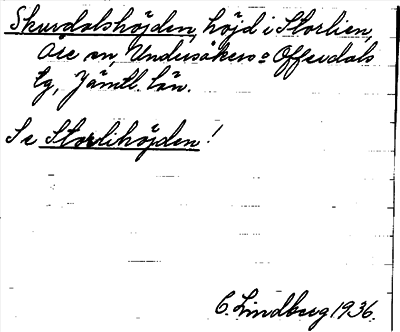 Skurdalshöjden, höjd i Storlien,
Åre sn, Undersåkers o Offerdals
tg, Jämtl. län.
Se Storlihöjden!
C. Lindberg 1936.